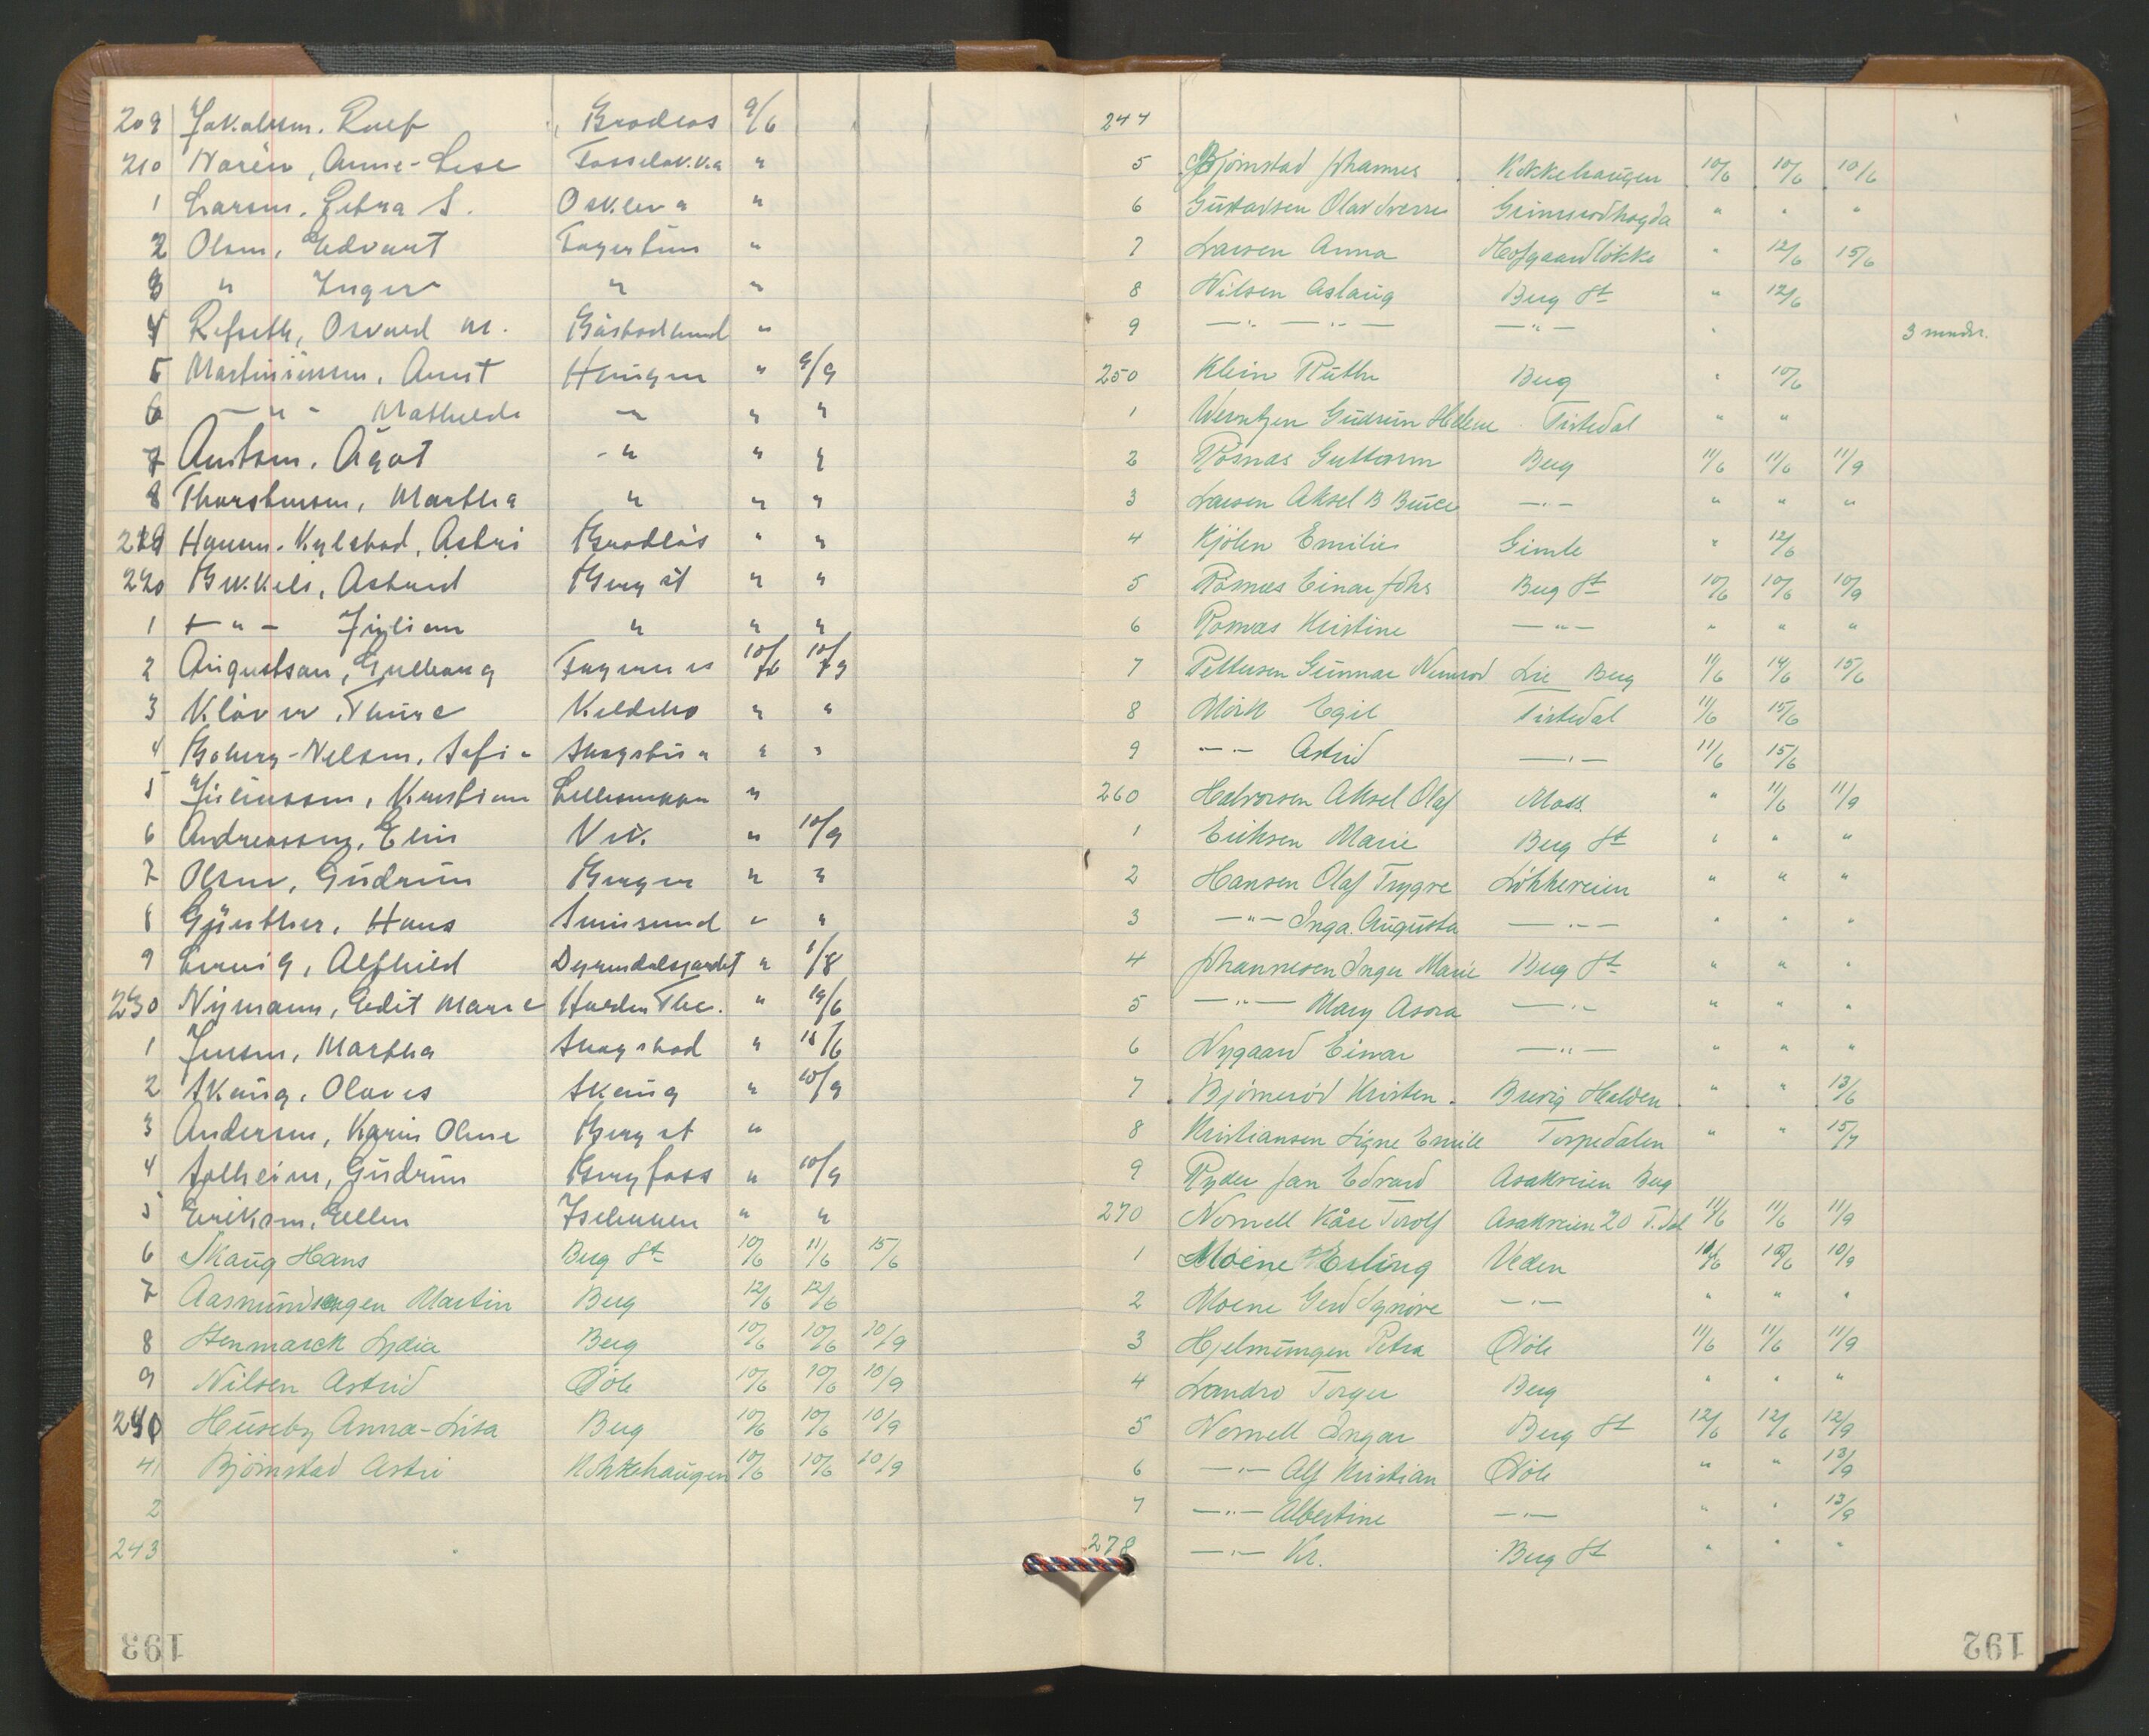 209 Jakobsen. Rolf Brödløs 9/6
210 Norén, Anne-Lise "
1 Larsen. Petra S. Oskleva "
2 Olsen, Edvart Fagertun "
3 " Inger " "
4 Refseth, Osvard M. Båstadlund "
5 Martiniussen, Arnt Haugen " 9/9
6 - " - Mathilde " " "
7 Arntsen. Ågot - " " "
8 Thorstensen, Martha " " "
219 Hansen-Kylstad, Astri Brødløs " "
220 Bekkeli, Astrid Berg st " "
1 - " - Juliane " " "
2 Augustsen, Gulborg Fagernes 10/6 10/9
3 Kløver. Thure " "
4 Boberg-Nelson, Sofie Skogstua " "
5 Juliussen, Kristian "
6 Andreassen, Elin Vik. " 10/9
7 Olsen, Gudrun Berger " "
8 Günther, Hans " "
9 Lervig, Alfhild Dyrendalsjordet " 1/8
230 Nymann, Edit Marie " 19/6
1 Jensen, Martha " 18/6
2 Skaug. Olaves Skaug " 10/9
3 Andersen, Karin Oline Berg st "
4 Solheim, Gudrun Bergfoss " 10/9
5 Eriksen, Ellen " "
6 Skaug Hans Berg St 10/6 11/6 15/6
7 Aasmundhagen Martin Berg 12/6 12/6
8 Stenmarck Lydia Berg 10/6 10/6 10/9
9 Nilsen Astrid 10/6 10/6 10/9
240 Huseby Anna-Lisa Berg 10/6 10/6 10/9
41 Björnstad Astri Kokkehaugen 10/6 10/6 10/9
2
243
193
244
5 Björnstad Johannes Kokkehaugen 10/6 10/6 10/6
6 Gustavsen Olav Sverre Grimsrødhøgda " " "
7 Larsen Anna Hofgaardløkke " 12/6 15/6
8 Nilsen Aslaug Berg St " 12/6
9 - " - - " - - " - " 3 mndr.
250 Klein Ruth Berg " 10/6
1 Werntzen Gudrun Helene Tistedal " "
2 Rösnæs Guttorm Berg 11/6 11/6 11/9
3 Larsen Aksel B - " - " " "
4 Kjölen Emilie Gimle " 12/6
5 Rösnæs Einar Johs Berg St 10/6 10/6 10/9
6 Rösnæs Kristine - " - " " "
7 Pettersen Gunnar Nimrod Lie Berg 11/6 14/6 15/6
8 Mörk Egil Tistedal 11/6 15/6
9 - " - Astrid - " - 11/6 15/6
260 Halvorsen Aksel Olaf Moss " 11/6 11/9
1 Eriksen Marie Berg St " " "
2 Hansen Olaf Trygve Løkkeveien " " "
3 - " - Inga Augusta - " - " " "
4 Johannesen Inger Marie Berg St " " "
5 - " - Mary Asora - " - " " "
6 Nygaard Einar - " - " " "
7 Björneröd Kristen Brevig Halden " " 13/6
8 Kristiansen Signe Emilie Torpedalen " " 15/7
9 Ryder Jan Edvard Asakveien Berg
270 Nornell Kåre Torolf Asakveien 20 T.dal 11/6 11/6 11/9
1 Moene Erling Veden 10/6 10/6 10/9
2 Moene Gerd Synöve - " - " " "
3 Hjelmungen Petra 11/6 11/6 11/9
4 Landro Torger Berg " " "
5 Nornell Ingar Berg St 12/6 12/6 12/9
6 - " - Alf Kristian " " 13/9
7 - " - Albertine - " - " " 13/9
278 - " - Kr. Berg St " " "
192